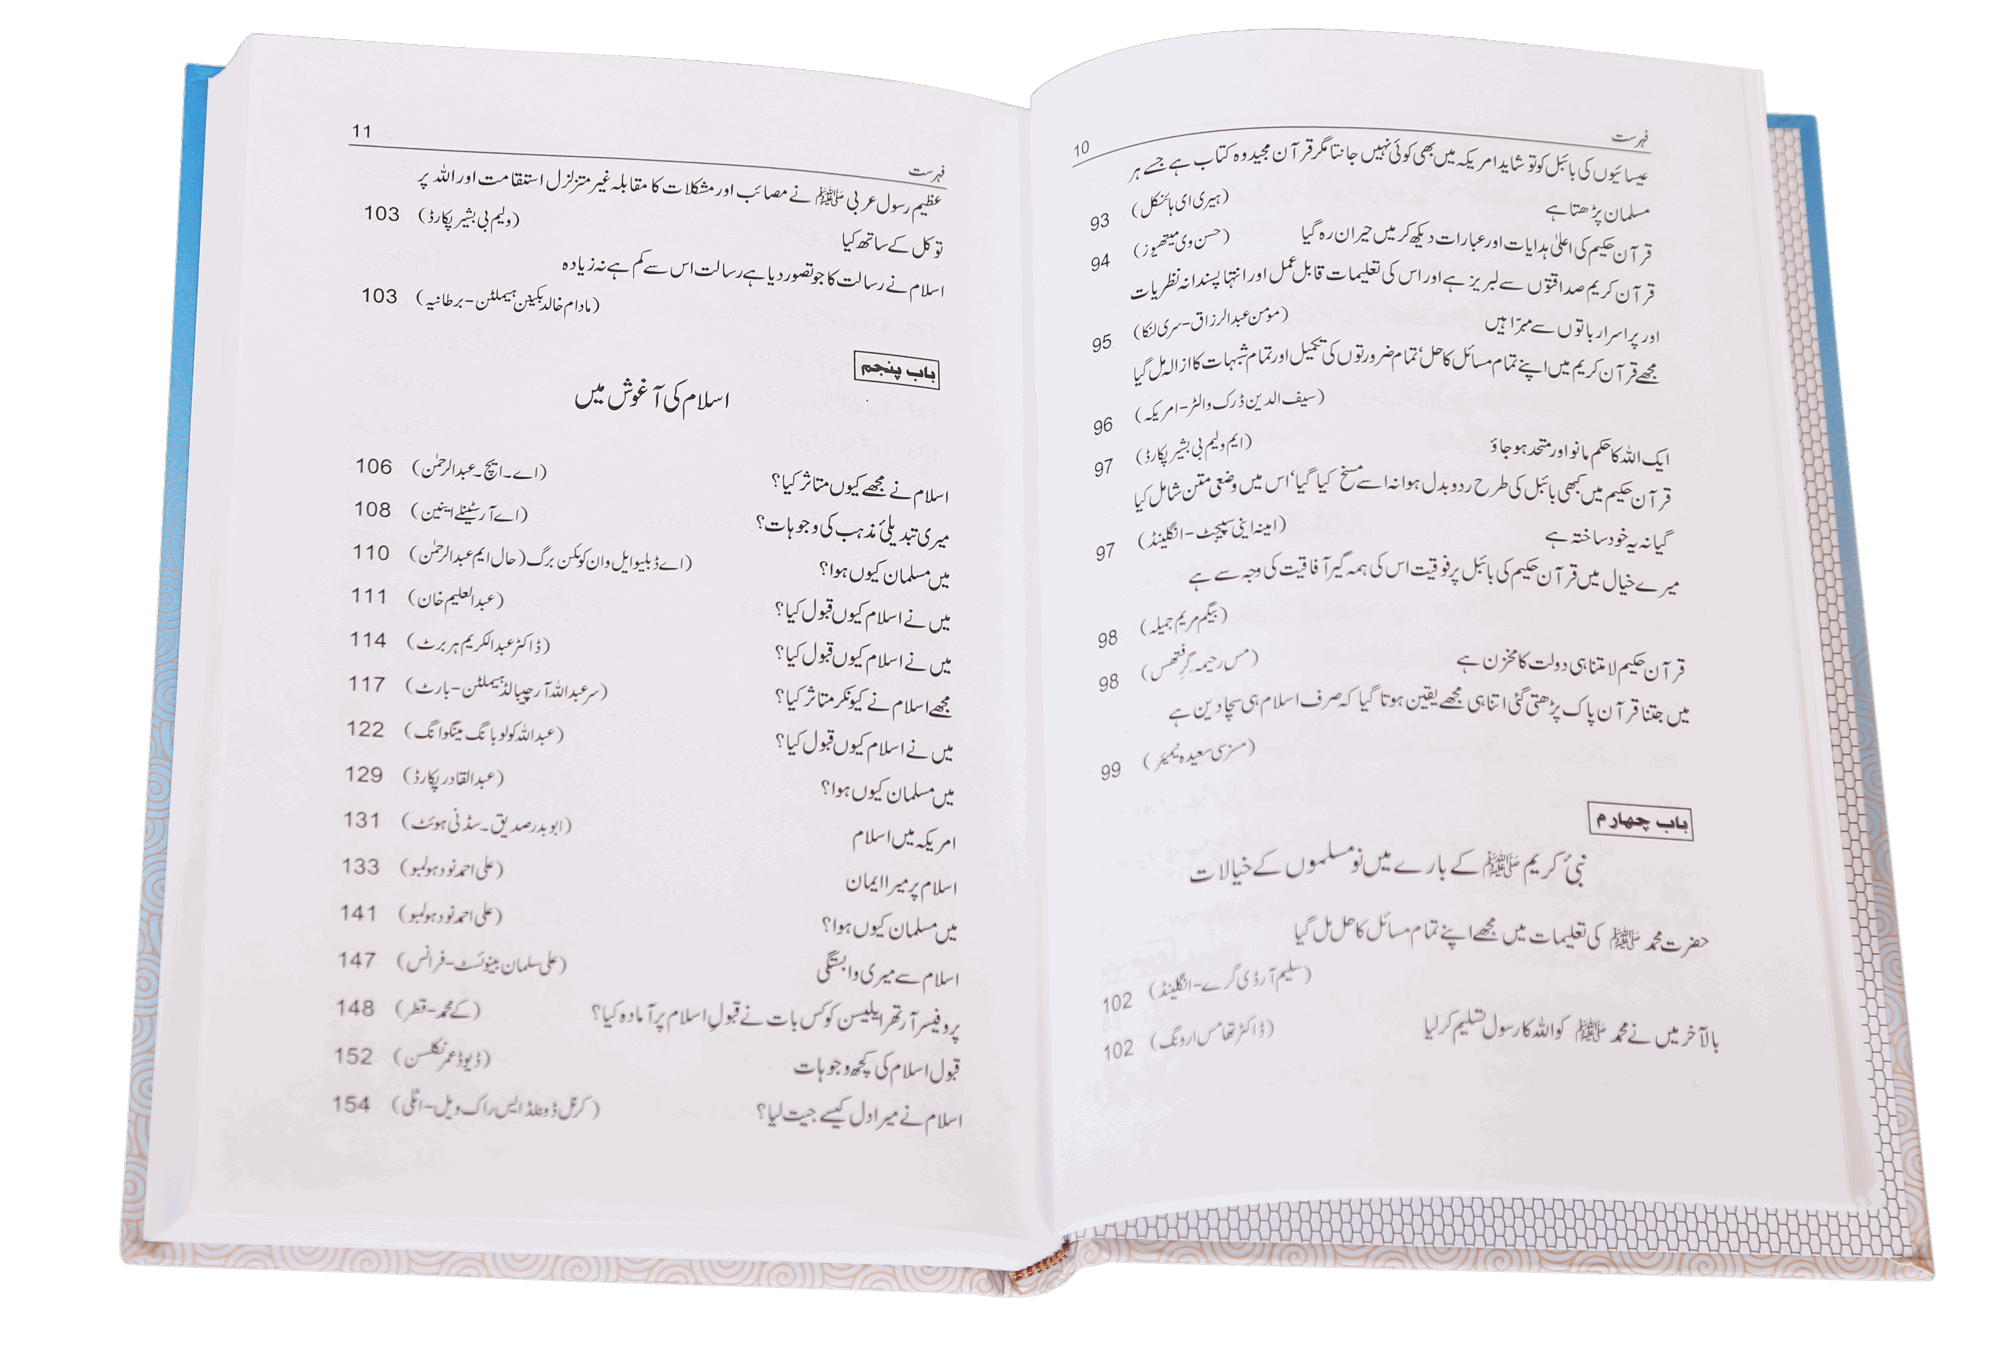 فہرست 10
عیسائیوں کی بائبل کو تو شاید امریکہ میں بھی کوئی نہیں جانتا مگر قرآن مجید وہ کتاب ہے جسے ہر
مسلمان پڑھتا ہے (ہیری ای ہائنکل) 93
قرآن حکیم کی اعلیٰ ہدایات اور عبارات دیکھ کر میں حیران رہ گیا (حسن وی میتھیوز) 94
قرآن کریم صداقتوں سے لبریز ہے اور اس کی تعلیمات قابل عمل اور انتہا پسندانہ نظریات
اور پراسرار باتوں سے مبرّا ہیں (مومن عبدالرزاق-سری لنکا) 95
مجھے قرآن کریم میں اپنے تمام مسائل کا حل‘ تمام ضرورتوں کی تکمیل اور تمام شبہات کا ازالہ مل گیا
(سیف الدین ڈرک والٹر-امریکہ) 96
ایک اللہ کا حکم مانو اور متحد ہو جاؤ (ایم ولیم بی بشیر پکارڈ) 97
قرآن حکیم میں کبھی بائبل کی طرح ردوبدل ہوا نہ اسے مسخ کیا گیا‘ اس میں وضعی متن شامل کیا
گیا نہ یہ خود ساختہ ہے (امینہ اینی سپیجٹ-انگلینڈ) 97
میرے خیال میں قرآن حکیم کی بائبل پر فوقیت اس کی ہمہ گیر آفاقیت کی وجہ سے ہے
(بیگم مریم جمیلہ) 98
قرآن حکیم لامتناہی دولت کا مخزن ہے (مس رحیمہ گرفتھس) 98
میں جتنا قرآن پاک پڑھتی گئی اتنا ہی مجھے یقین ہوتا گیا کہ صرف اسلام ہی سچا دین ہے
(مسز سی سعیدہ نیمیئر) 99
باب چہارم
نبیٔ کریم ﷺ کے بارے میں نو مسلموں کے خیالات
حضرت محمد ﷺ کی تعلیمات میں مجھے اپنے تمام مسائل کا حل مل گیا
(سلیم آر ڈی گرے-انگلینڈ) 102
بالآخر میں نے محمد ﷺ کو اللہ کا رسول تسلیم کر لیا (ڈاکٹر تھامس ارونگ) 102
فہرست 11
عظیم رسول عربی ﷺ نے مصائب اور مشکلات کا مقابلہ غیر متزلزل استقامت اور اللہ پر
توکل کے ساتھ کیا (ولیم بی بشیر پکارڈ) 103
اسلام نے رسالت کا جو تصور دیا ہے رسالت اس سے کم ہے نہ زیادہ
(مادام خالد بکینن ہیملٹن-برطانیہ) 103
باب پنجم
اسلام کی آغوش میں
اسلام نے مجھے کیوں متاثر کیا؟ (اے۔ایچ۔عبدالرحمٰن) 106
میری تبدیلیٔ مذہب کی وجوہات؟ (اے آر سٹینلے اینین) 108
میں مسلمان کیوں ہوا؟ (اے ڈبلیو ایل وان کوئکن برگ (حال ایم عبدالرحمٰن) 110
میں نے اسلام کیوں قبول کیا؟ (عبدالعلیم خان) 111
میں نے اسلام کیوں قبول کیا؟ (ڈاکٹر عبدالکریم ہربرٹ) 114
مجھے اسلام نے کیونکر متاثر کیا؟ (سر عبداللہ آرچیبالڈ ہیملٹن-بارٹ) 117
میں نے اسلام کیوں قبول کیا؟ (عبداللہ کولوبانگ مینگوانگ) 122
میں مسلمان کیوں ہوا؟ (عبدالقادر پکارڈ) 129
امریکہ میں اسلام (ابوبدر صدیق۔سڈنی ہوئٹ) 131
اسلام پر میرا ایمان (علی احمد نود ہولمبو) 133
میں مسلمان کیوں ہوا؟ (علی احمد نود ہولمبو) 141
اسلام سے میری وابستگی (علی سلمان بینوئسٹ-فرانس) 147
پروفیسر آرتھر ایلیسن کو کس بات نے قبولِ اسلام پر آمادہ کیا؟ (کے محمد-قطر) 148
قبول اسلام کی کچھ وجوہات (ڈیوڈ عمر نکلسن) 152
اسلام نے میرا دل کیسے جیت لیا؟ (کرنل ڈونلڈ ایس راک ویل-اٹلی) 154